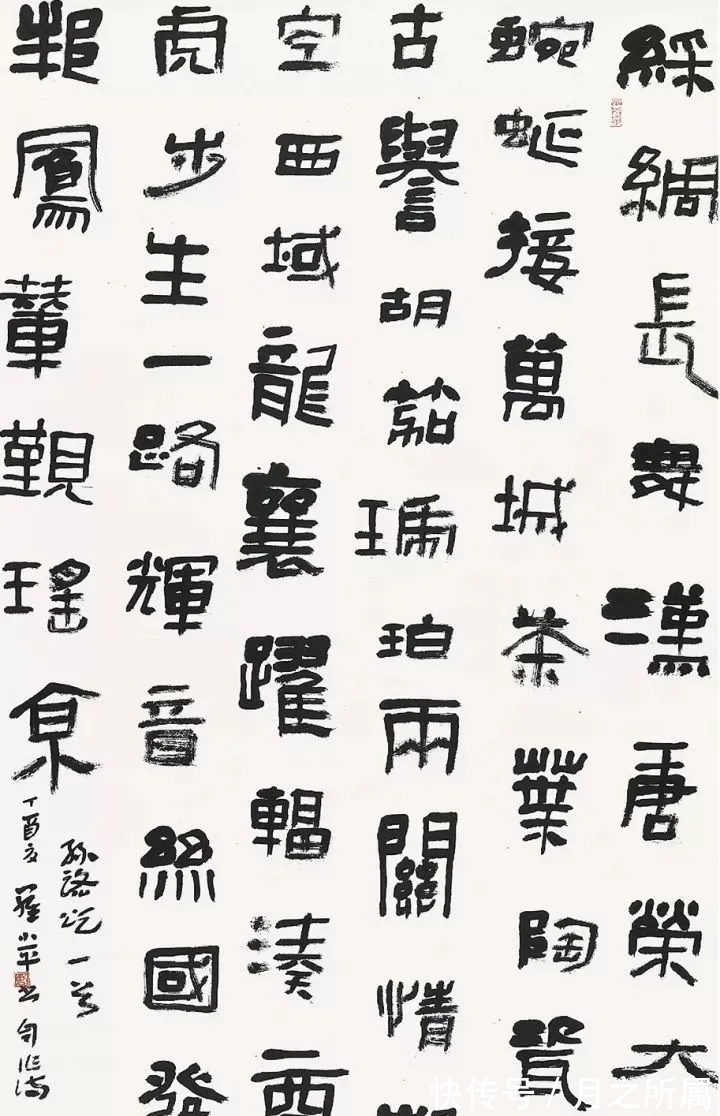 綵綢長舞漢唐榮大
蜿蜒接萬城茶葉陶瓷
古譽胡茄琥珀兩關情
空西域龍襄躍輻湊西
虎步生一路輝音絲國發
邦鳳輦覲瑤京
絲路頌一首
丁酉夏羅小平書自作詩
快传号 / 月之所属